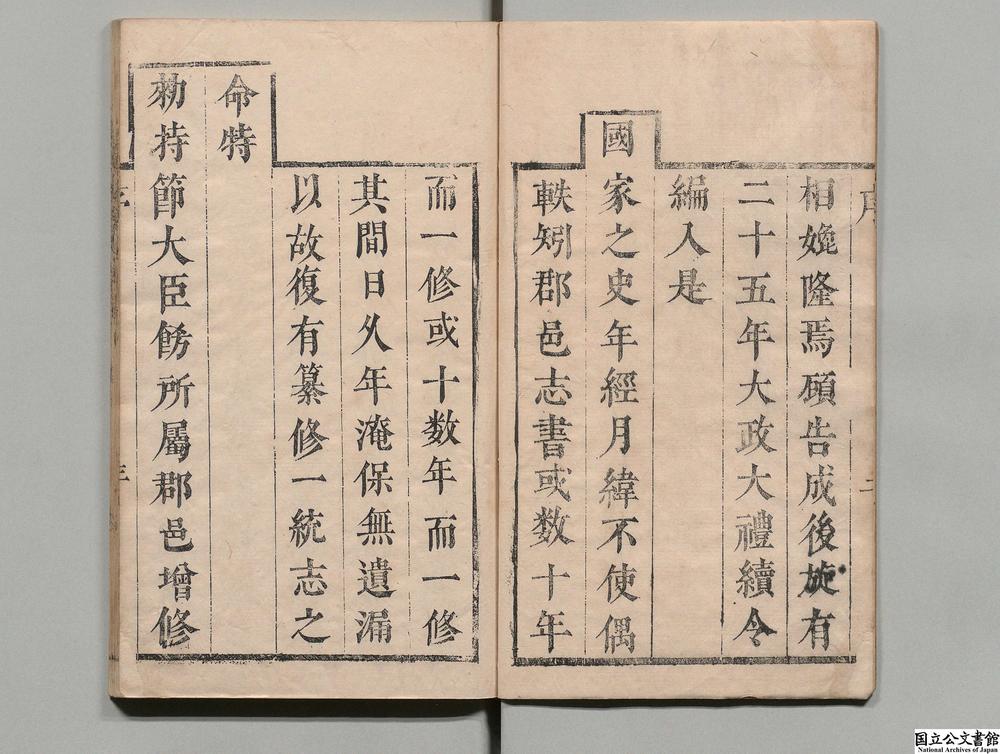 相媲隆焉顧告成後旋有
二十五年大政大禮續令
編入是
國家之史年經月緯不使偶
軼矧郡邑志書或数十年
而一修或十数年而一修
其間日久年淹保無遺漏
以故復有纂修一統志之
命特
勑持節大臣餝所屬郡邑增修
序
国立公文書館
National Archives of Japan